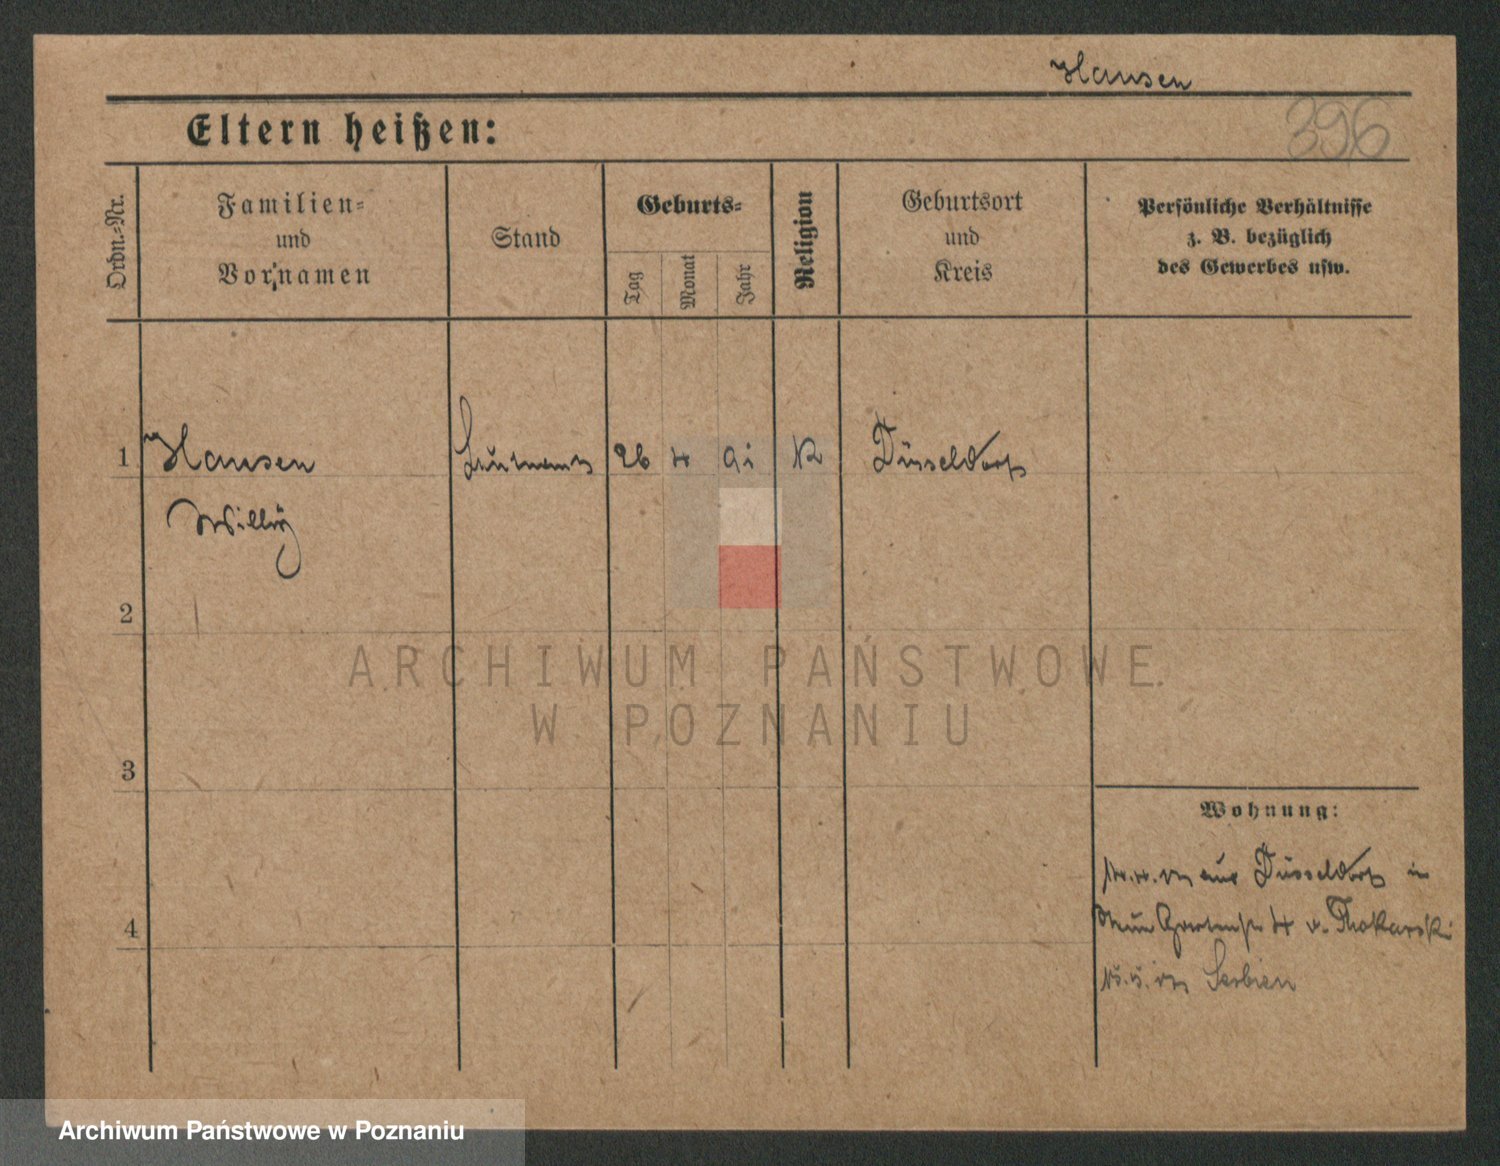 Hansen
Eltern heißen:
396
Ordn.-Nr.
Familien-
und
Vornamen
Stand
Geburts-
Tag
Monat
Jahr
Religion
Geburtsort
und
Kreis
Persönliche Verhältnisse
z. B. bezüglich
des Gewerbes usw.
1
Hansen
Leutnant
26
4
91
K
Düsseldorf
Willy
2
3
4
Wohnung:
aus Düsseldorf in
Gartenstr 4 v. Tokarski
Serbien
ARCHIWUM PAŃSTWOWE
W POZNANIU
Archiwum Państwowe w Poznaniu